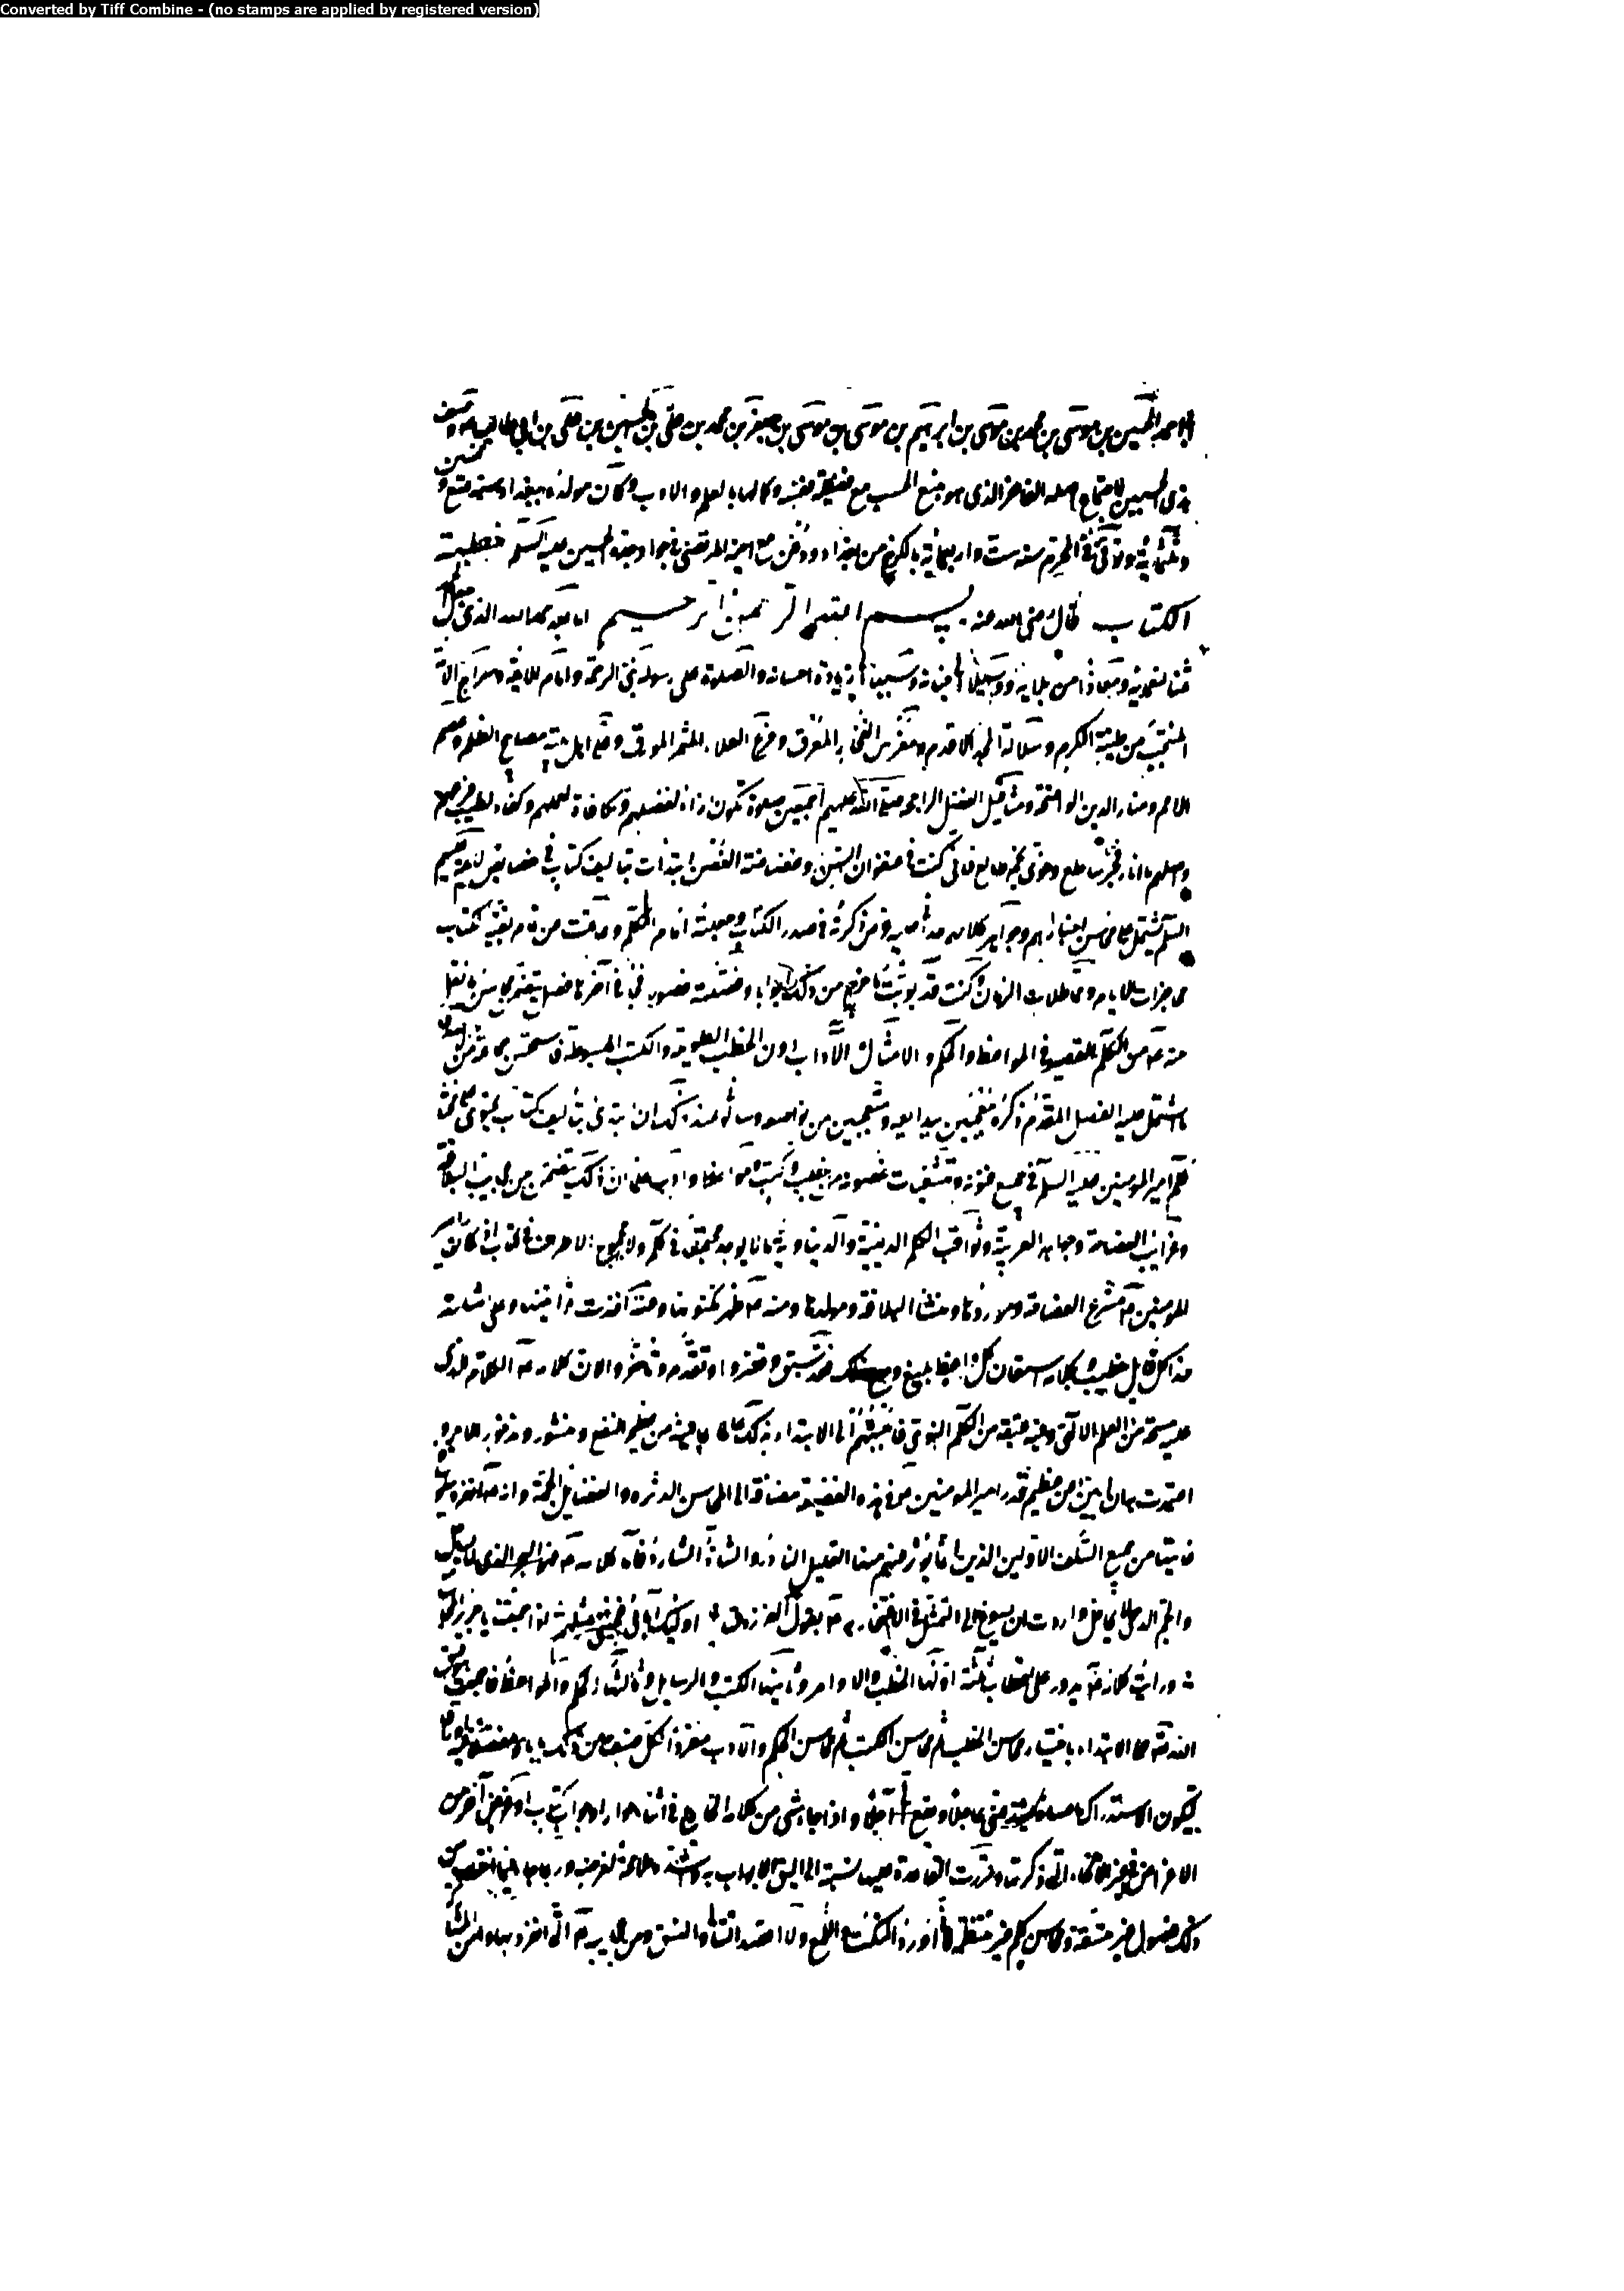 Converted by Tiff Combine - (no stamps are applied by registered version)
ابو احمد الحسين بن موسى بن محمد بن موسى بن ابرهيم بن موسى بن جعفر بن محمد بن على بن الحسين بن على بن ابي طالب
بذى الحسبين لاجتماع اصله الفاخر الذى هو منبع الحسب مع فضيلة نفسه وكمالها بالعلم والادب وكان مولده ببغداد سنه تسع و خمسين
وثلثمائة وتوفى فى المحرم سنه ست واربعمائة بالكرخ من بغداد ودفن مع اخيه المرتضى فى جوار جده الحسين عليه السلم خطبة
الكتاب قال رضى الله عنه بسم الله الرحمن الرحيم اما بعد حمد الله الذى جعل الحمد
ثمنا لنعمائه ومعاذا من بلائه ووسيلا الى جنانه وسببا لزيادة احسانه والصلوة على رسوله نبى الرحمة وامام الائمة وسراج الامة
المنتجب من طينة الكرم وسلالة المجد الاقدم ومغرس الفخار المعرق وفرع العلاء المثمر المورق وعلى اهل بيته مصابيح الظلم وعصم
الامم ومنار الدين الواضحة ومثاقيل الفضل الراجحة صلى الله عليهم اجمعين صلوة تكون ازاء لفضلهم ومكافاة لعملهم وكفاء لطيب فرعهم
واصلهم ما انار فجر ساطع وخوى نجم طالع فانى كنت فى عنفوان السن وغضاضة الغصن ابتدات بتاليف كتاب فى خصائص الائمة عليهم
السلم يشتمل على محاسن اخبارهم وجواهر كلامهم حدانى عليه غرض ذكرته فى صدر الكتاب وجعلته امام الكلام وعاقت عن اتمام بقية الكتاب
محاجزات الايام ومماطلات الزمان وكنت قد بوبت ما خرج من ذلك ابوابا وفصلته فصولا فجاء فى آخرها فصل يتضمن محاسن ما نقل
عنه من الكلام القصير فى المواعظ والحكم والامثال والآداب دون الخطب الطويلة والكتب المبسوطة فاستحسن جماعة من
ما اشتمل عليه الفصل المقدم ذكره معجبين ببدايعه ومتعجبين من نواصعه وسالونى عند ذلك ان ابتدئ بتاليف كتاب يحتوى على مختار
كلام امير المومنين عليه السلم فى جميع فنونه ومتشعبات غصونه من خطب وكتب ومواعظ وادب علما ان ذلك يتضمن من عجايب البلاغة
وغرايب الفصاحة وجواهر العربية وثواقب الكلم الدينية والدنياوية ما لا يوجد مجتمعا فى كلام ولا مجموع الاطراف فى كتاب اذ كان امير
المومنين مشرع الفصاحة وموردها ومنشا البلاغة ومولدها ومنه ظهر مكنونها وعنه اخذت قوانينها وعلى امثلته
حذا كل قايل خطيب وبكلامه استعان كل واعظ بليغ ومع ذلك فقد سبق وقصروا وتقدم وتاخروا ولان كلامه الكلام الذى
عليه مسحة من العلم الالهى وفيه عبقة من الكلام النبوى فاجبتهم الى الابتداء بذلك عالما بما فيه من عظيم النفع ومنشور الذكر ومذخور الاجر
اعتمدت به ان ابين من عظيم قدر امير المومنين فى هذه الفضيلة مضافة الى المحاسن الدثرة والفضائل الجمة وانه انفرد ببلوغ
غايتها من جميع السلف الاولين الذين انما يؤثر عنهم منها القليل النادر والشاذ الشارد فاما كلامه فهو البحر الذى لا يساجل
والجم الذى لا يحافل واردت ان يسوغ لى التمثل فى الافتخار به بقول الفرزدق اولئك آبائى فجئنى بمثلهم اذا جمعتنا يا جرير المجامع
ورايت كلامه يدور على اقطاب ثلثة اولها الخطب والاوامر وثانيها الكتب والرسايل وثالثها الحكم والمواعظ فاجمعت بتوفيق
الله على الابتداء باختيار محاسن الخطب ثم محاسن الكتب ثم محاسن الحكم والادب مفردا لكل صنف من ذلك بابا ومفصلا فيه اوراقا
لتكون لاستدراك ما عساه يشذ عنى عاجلا ويقع الى آجلا واذا جاء شى من كلامه الخارج فى اثناء حوار او جواب كتاب او غرض آخر من
الاغراض فى غير الانحاء التى ذكرتها وقررت القاعدة عليها نسبته الى اليق الابواب به واشدها ملامحة لغرضه وربما جاء فيما اختاره من
ذلك فصول غير متسقة ومحاسن كلم غير منتظمة لانى اورد النكت واللمع ولا اقصد التتالى والنسق ومن عجايبه التى انفرد بها وامن المشاركة